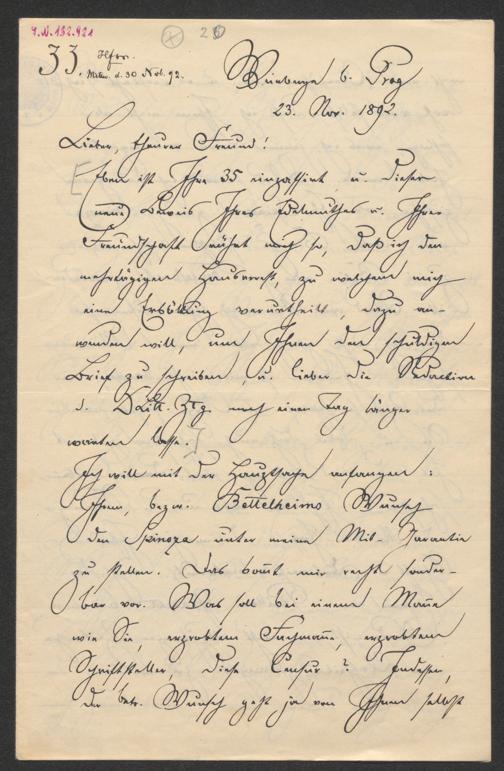 I.N. 152.421
33.
Mitm. d. 30 Nov. 92.
Weinberge b. Prag
23. Nov. 1892.
Lieber, theurer Freund!
Eben ist Ihre 35 eingetroffen u. dieser
neue Beweis Ihres Edelmuthes u. Ihrer
Freundschaft rührt mich so, daß ich den
mehrtägigen Hausarrest, zu welchem mich
eine Erkältung verurtheilt, dazu an-
wenden will, um Ihnen den schuldigen
Brief zu schreiben, u. lieber die Redaction
d. Lit. Ztg. noch einen Tag länger
warten lasse.
Ich will mit der Hauptsache anfangen:
Ihrem, bezw. Bettelheims Wunsch
den Spinoza unter meine Mit-Garantie
zu stellen. Das kom̄t mir recht sonder-
bar vor. Was soll bei einem Man̄e
wie Sie, erprobtem Fachman̄e, erprobtem
Schriftsteller, diese Censur? Indessen,
der betr. Wunsch geht ja von Ihnen selbst